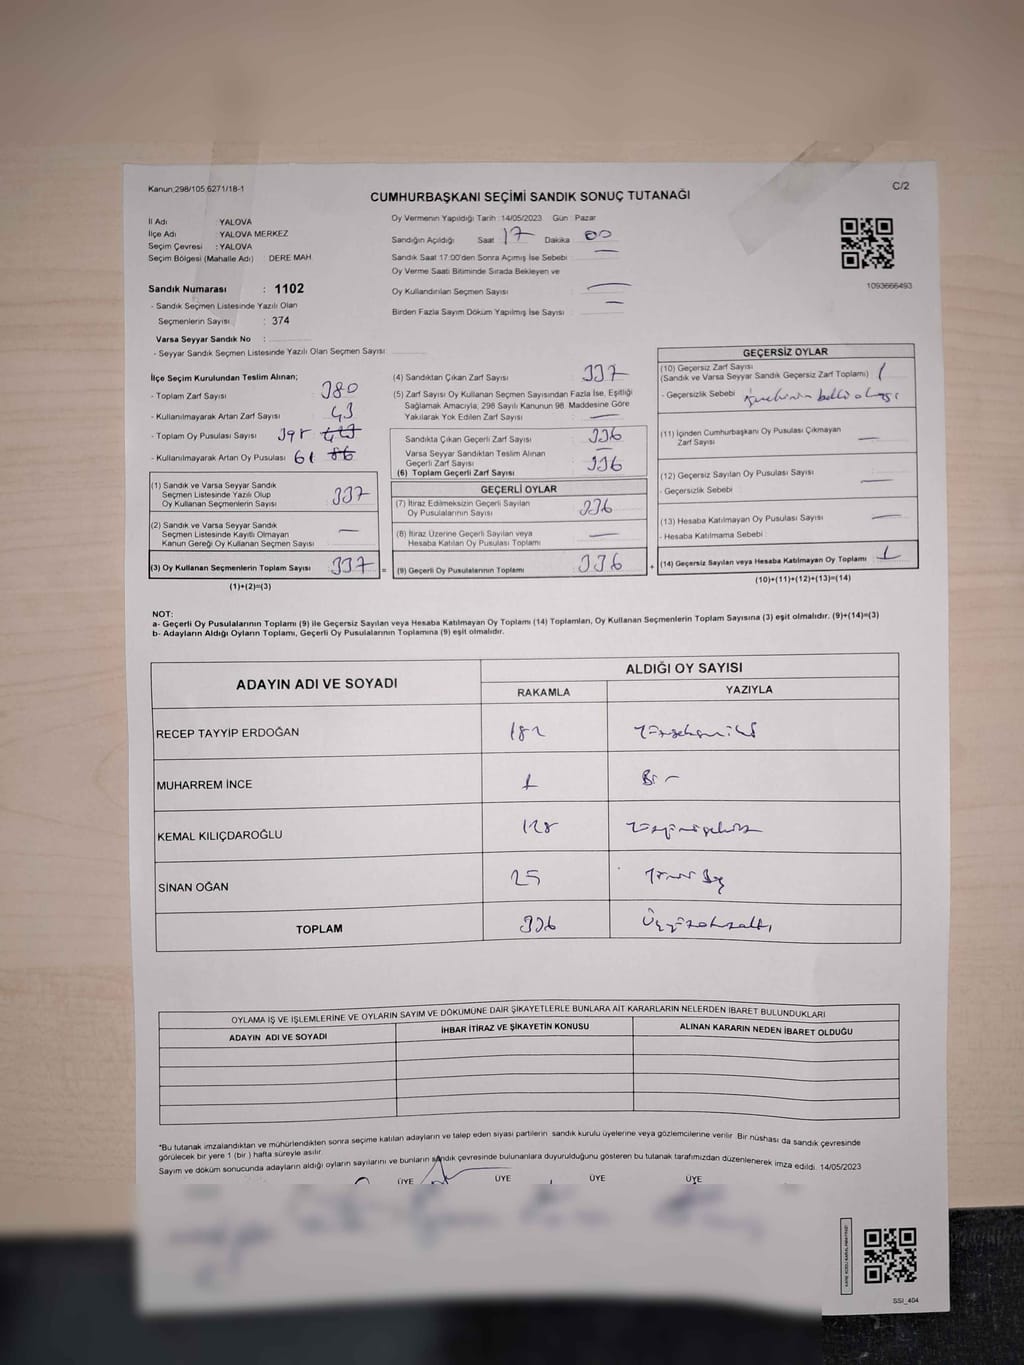 Kanun;298/105;6271/18-1
C/2
CUMHURBAŞKANI SEÇİMİ SANDIK SONUÇ TUTANAĞI
İl Adı : YALOVA
İlçe Adı : YALOVA MERKEZ
Seçim Çevresi : YALOVA
Seçim Bölgesi (Mahalle Adı) DERE MAH
Sandık Numarası : 1102
- Sandık Seçmen Listesinde Yazılı Olan
Seçmenlerin Sayısı : 374
Varsa Seyyar Sandık No :
- Seyyar Sandık Seçmen Listesinde Yazılı Olan Seçmen Sayısı
Oy Vermenin Yapıldığı Tarih :14/05/2023 Gün : Pazar
Sandığın Açıldığı Saat 17 Dakika 00
Sandık Saat 17:00'den Sonra Açımış İse Sebebi :
Oy Verme Saati Bitiminde Sırada Bekleyen ve
Oy Kullandırılan Seçmen Sayısı :
Birden Fazla Sayım Döküm Yapılmış İse Sayısı :
1093666493
İlçe Seçim Kurulundan Teslim Alınan;
- Toplam Zarf Sayısı : 380
- Kullanılmayarak Artan Zarf Sayısı : 43
- Toplam Oy Pusulası Sayısı : 398
- Kullanılmayarak Artan Oy Pusulası : 61 86
(1) Sandık ve Varsa Seyyar Sandık
Seçmen Listesinde Yazılı Olup
Oy Kullanan Seçmenlerin Sayısı : 337
(2) Sandık ve Varsa Seyyar Sandık
Seçmen Listesinde Kayıtlı Olmayan
Kanun Gereği Oy Kullanan Seçmen Sayısı : —
(3) Oy Kullanan Seçmenlerin Toplam Sayısı : 337
(1)+(2)=(3)
(4) Sandıktan Çıkan Zarf Sayısı : 337
(5) Zarf Sayısı Oy Kullanan Seçmen Sayısından Fazla İse, Eşitliği
Sağlamak Amacıyla, 298 Sayılı Kanunun 98. Maddesine Göre
Yakılarak Yok Edilen Zarf Sayısı : —
Sandıkta Çıkan Geçerli Zarf Sayısı : 336
Varsa Seyyar Sandıktan Teslim Alınan
Geçerli Zarf Sayısı : —
(6) Toplam Geçerli Zarf Sayısı : 336
GEÇERLİ OYLAR
(7) İtiraz Edilmeksizin Geçerli Sayılan
Oy Pusulalarının Sayısı : 336
(8) İtiraz Üzerine Geçerli Sayılan veya
Hesaba Katılan Oy Pusulası Toplamı : —
(9) Geçerli Oy Pusulalarının Toplamı : 336
GEÇERSİZ OYLAR
(10) Geçersiz Zarf Sayısı
(Sandık ve Varsa Seyyar Sandık Geçersiz Zarf Toplamı) : 1
- Geçersizlik Sebebi :
(11) İçinden Cumhurbaşkanı Oy Pusulası Çıkmayan
Zarf Sayısı : —
(12) Geçersiz Sayılan Oy Pusulası Sayısı : —
- Geçersizlik Sebebi
(13) Hesaba Katılmayan Oy Pusulası Sayısı : —
- Hesaba Katılmama Sebebi
(14) Geçersiz Sayılan veya Hesaba Katılmayan Oy Toplamı : 1
(10)+(11)+(12)+(13)=(14)
NOT:
a- Geçerli Oy Pusulalarının Toplamı (9) ile Geçersiz Sayılan veya Hesaba Katılmayan Oy Toplamı (14) Toplamları, Oy Kullanan Seçmenlerin Toplam Sayısına (3) eşit olmalıdır. (9)+(14)=(3)
b- Adayların Aldığı Oyların Toplamı, Geçerli Oy Pusulalarının Toplamına (9) eşit olmalıdır.
ADAYIN ADI VE SOYADI ALDIĞI OY SAYISI
RAKAMLA YAZIYLA
RECEP TAYYİP ERDOĞAN 182
MUHARREM İNCE 1 Bir
KEMAL KILIÇDAROĞLU 128
SİNAN OĞAN 25
TOPLAM 336
OYLAMA İŞ VE İŞLEMLERİNE VE OYLARIN SAYIM VE DÖKÜMÜNE DAİR ŞİKAYETLERLE BUNLARA AİT KARARLARIN NELERDEN İBARET BULUNDUKLARI
ADAYIN ADI VE SOYADI İHBAR İTİRAZ VE ŞİKAYETİN KONUSU ALINAN KARARIN NEDEN İBARET OLDUĞU
*Bu tutanak imzalandıktan ve mühürlendikten sonra seçime katılan adayların ve talep eden siyasi partilerin sandık kurulu üyelerine veya gözlemcilerine verilir. Bir nüshası da sandık çevresinde
görülecek bir yere 1 (bir ) hafta süreyle asılır.
Sayım ve döküm sonucunda adayların aldığı oyların sayılarını ve bunların sandık çevresinde bulunanlara duyurulduğunu gösteren bu tutanak tarafımızdan düzenlenerek imza edildi. 14/05/2023
ÜYE ÜYE ÜYE ÜYE
SSI_404